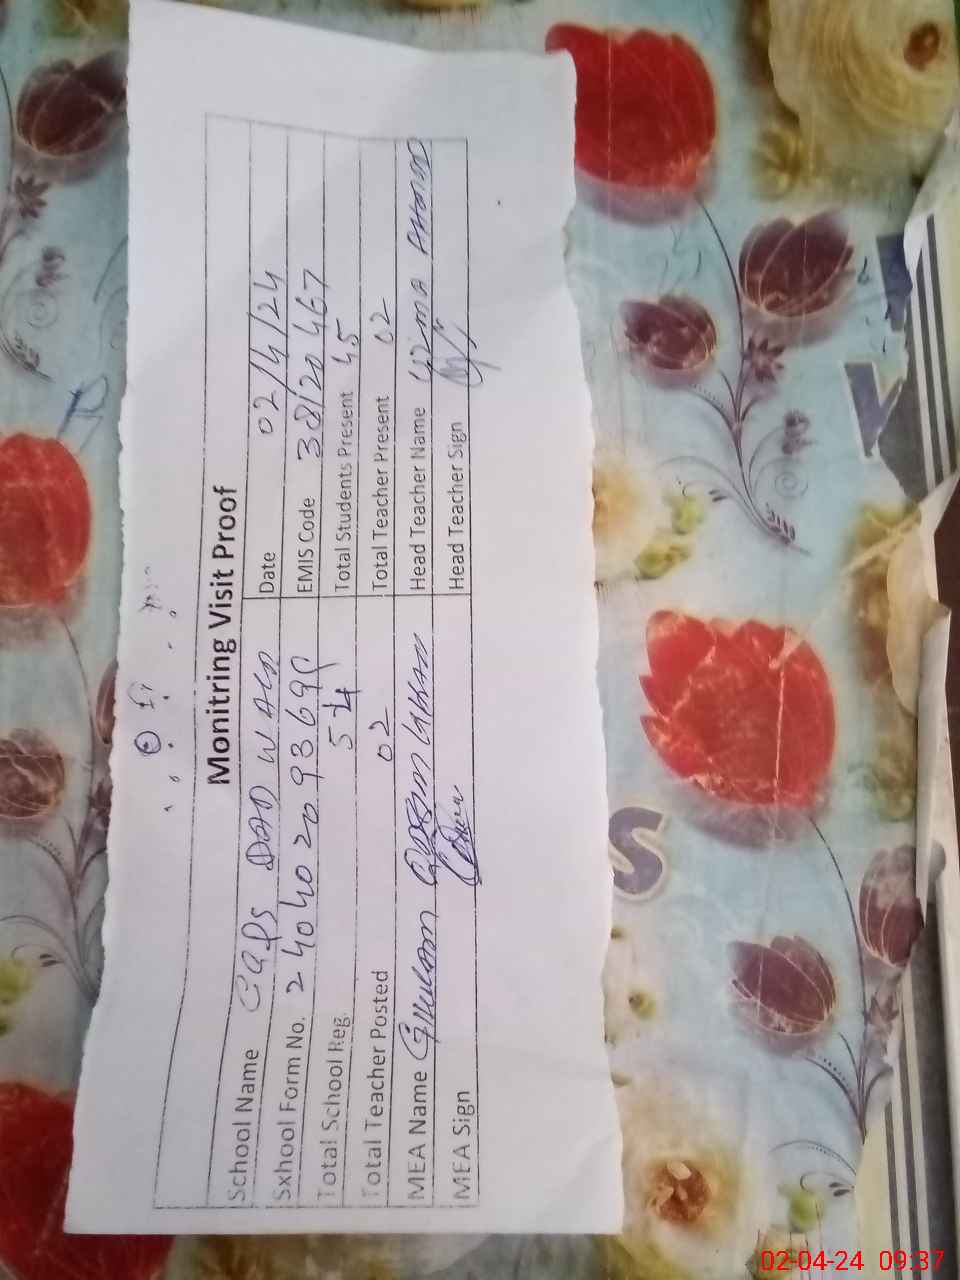 Monitring Visit Proof
School Name GGPS DAD WALA Date 02/4/24
Sxhool Form No. 240402093699 EMIS Code 38120467
Total School Reg. 54 Total Students Present 45
Total Teacher Posted 02 Total Teacher Present 02
MEA Name Ghulam Head Teacher Name UZMA AHMAD
MEA Sign Head Teacher Sign
S
02-04-24 09:37